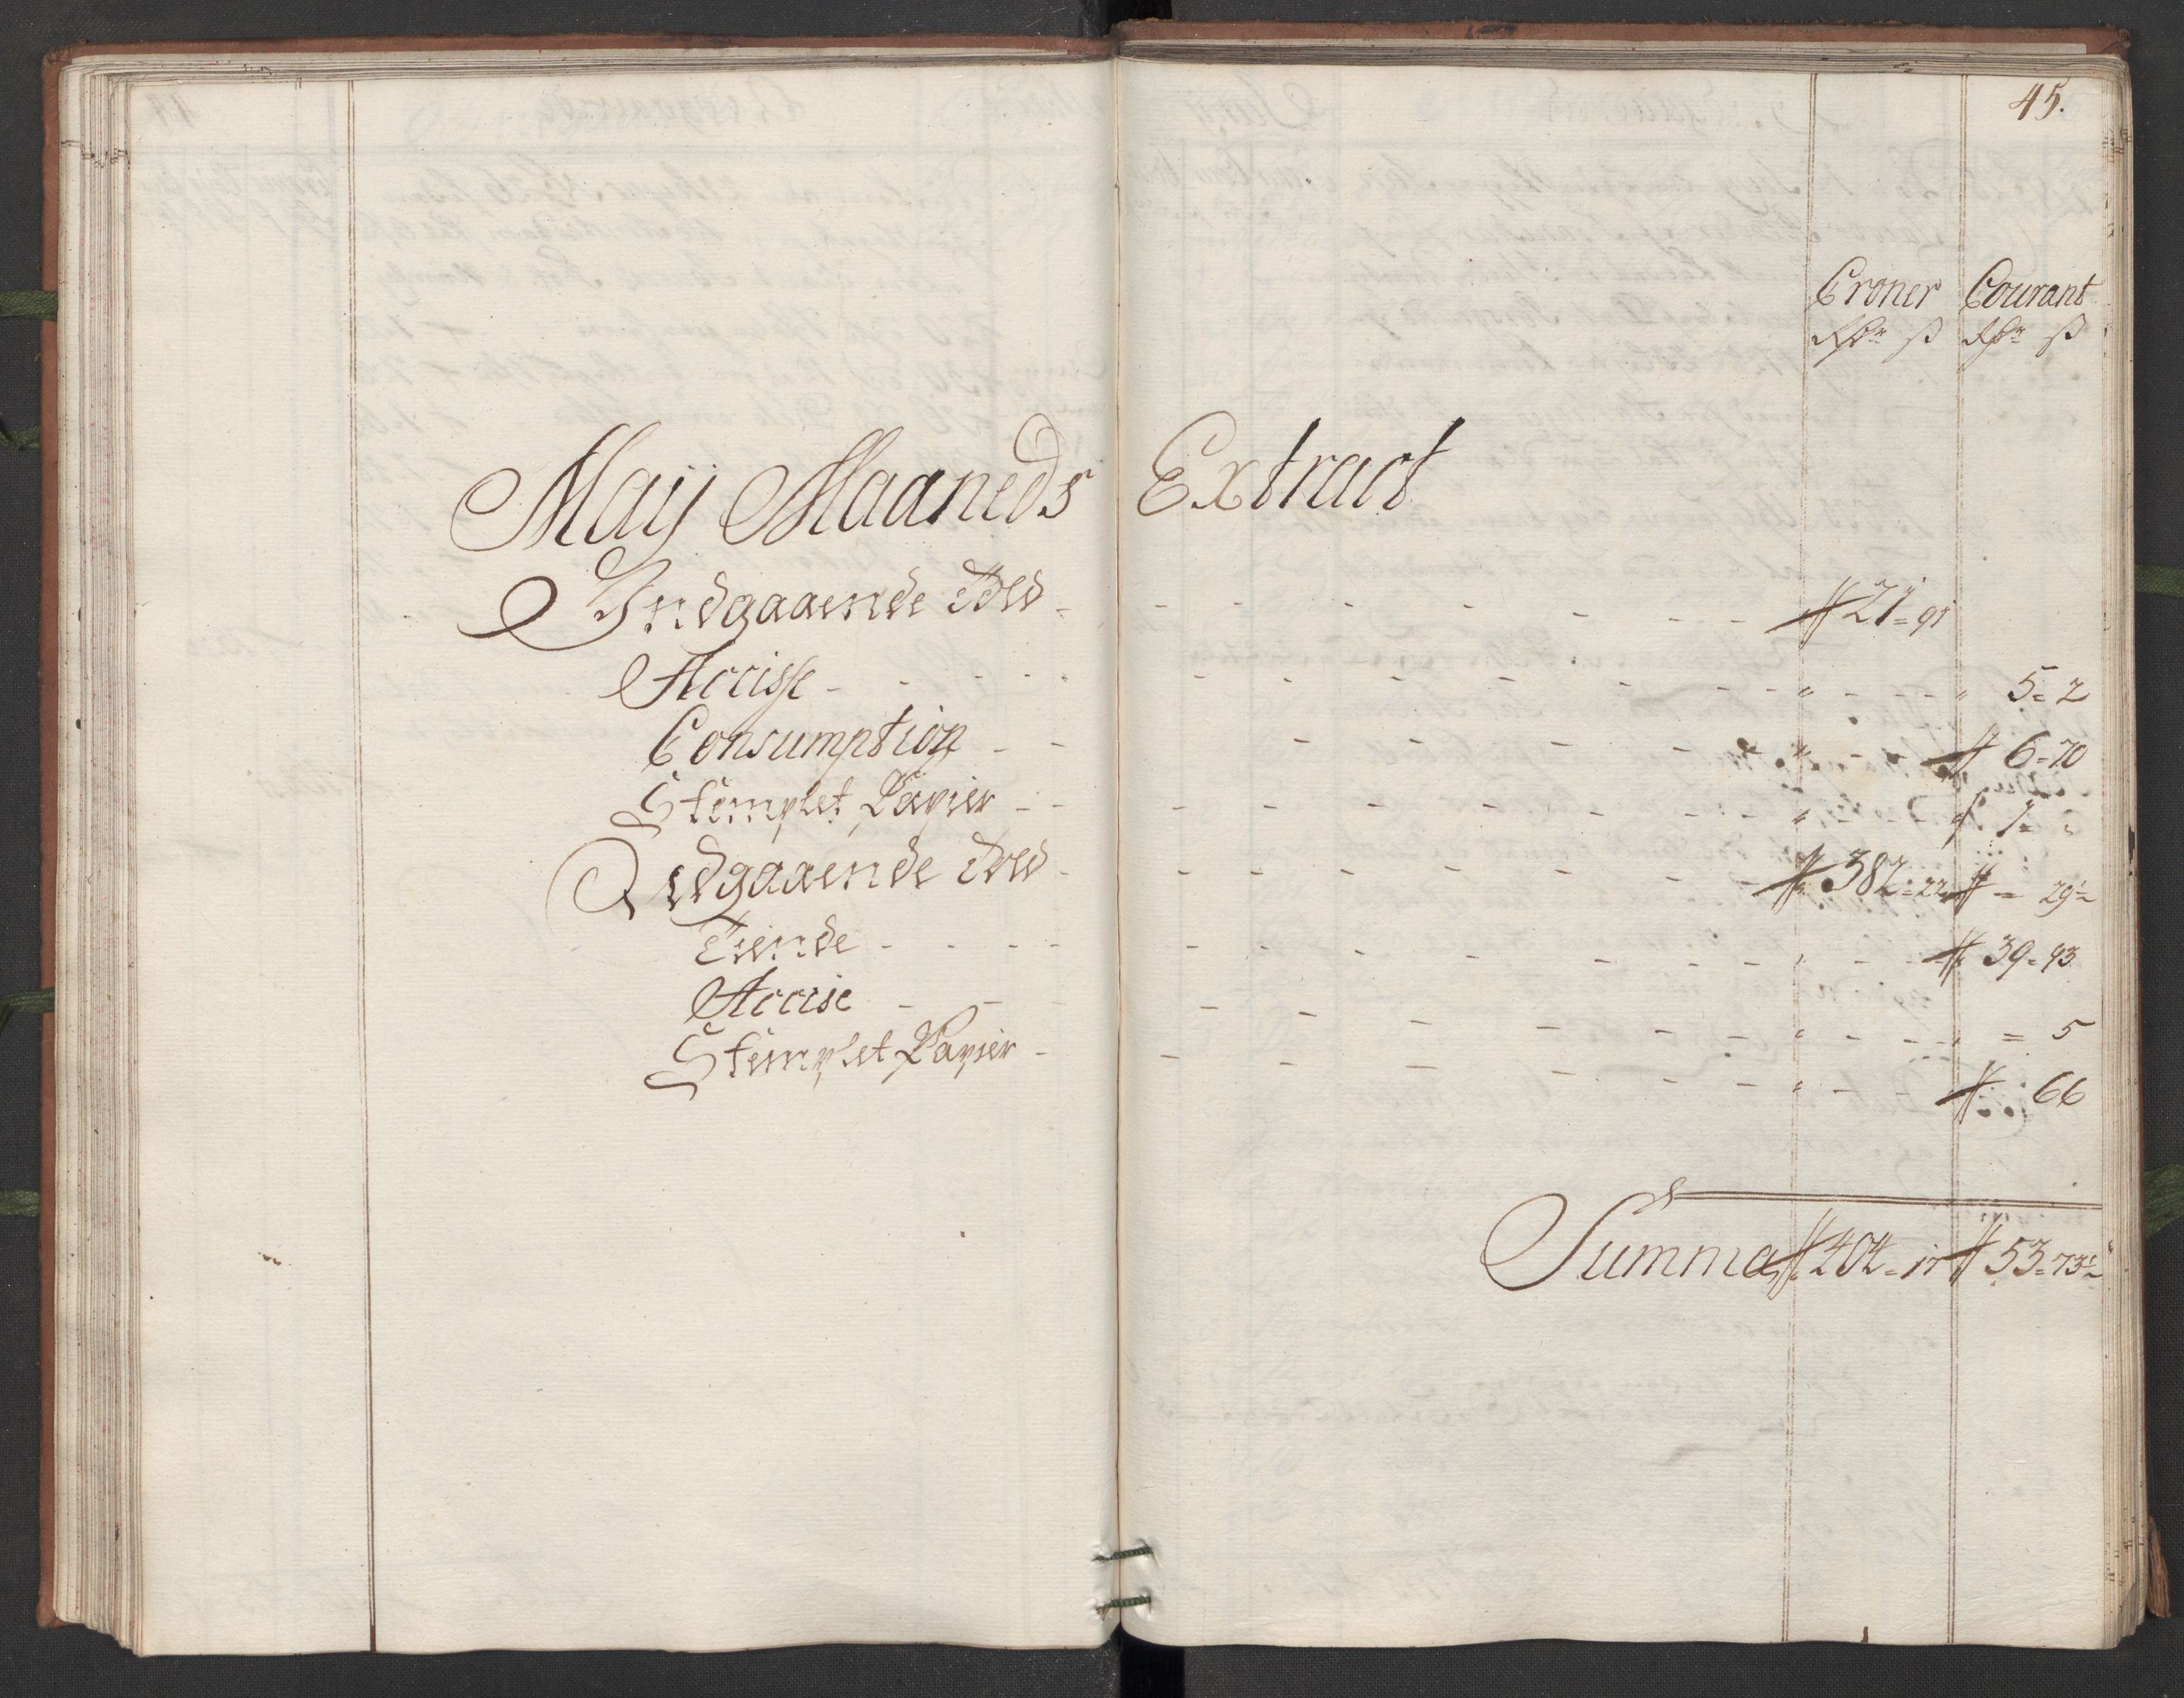 45.
Croner Courant
Rdr ß Rdr ß
Maij Maaneds Extract
Indgaaende Told - 21 = 91
Accisse - " - " 5 = 2
Consumption - " - 6 = 70
Stemplet Papier - " - 1 = "
Udgaaende Told - 382 = 22 = 29½
Tiende - " - 39 = 93
Accise - " - " = 5
Stemplet Papier - " - 66
Summa 404 = 17 53 = 73½